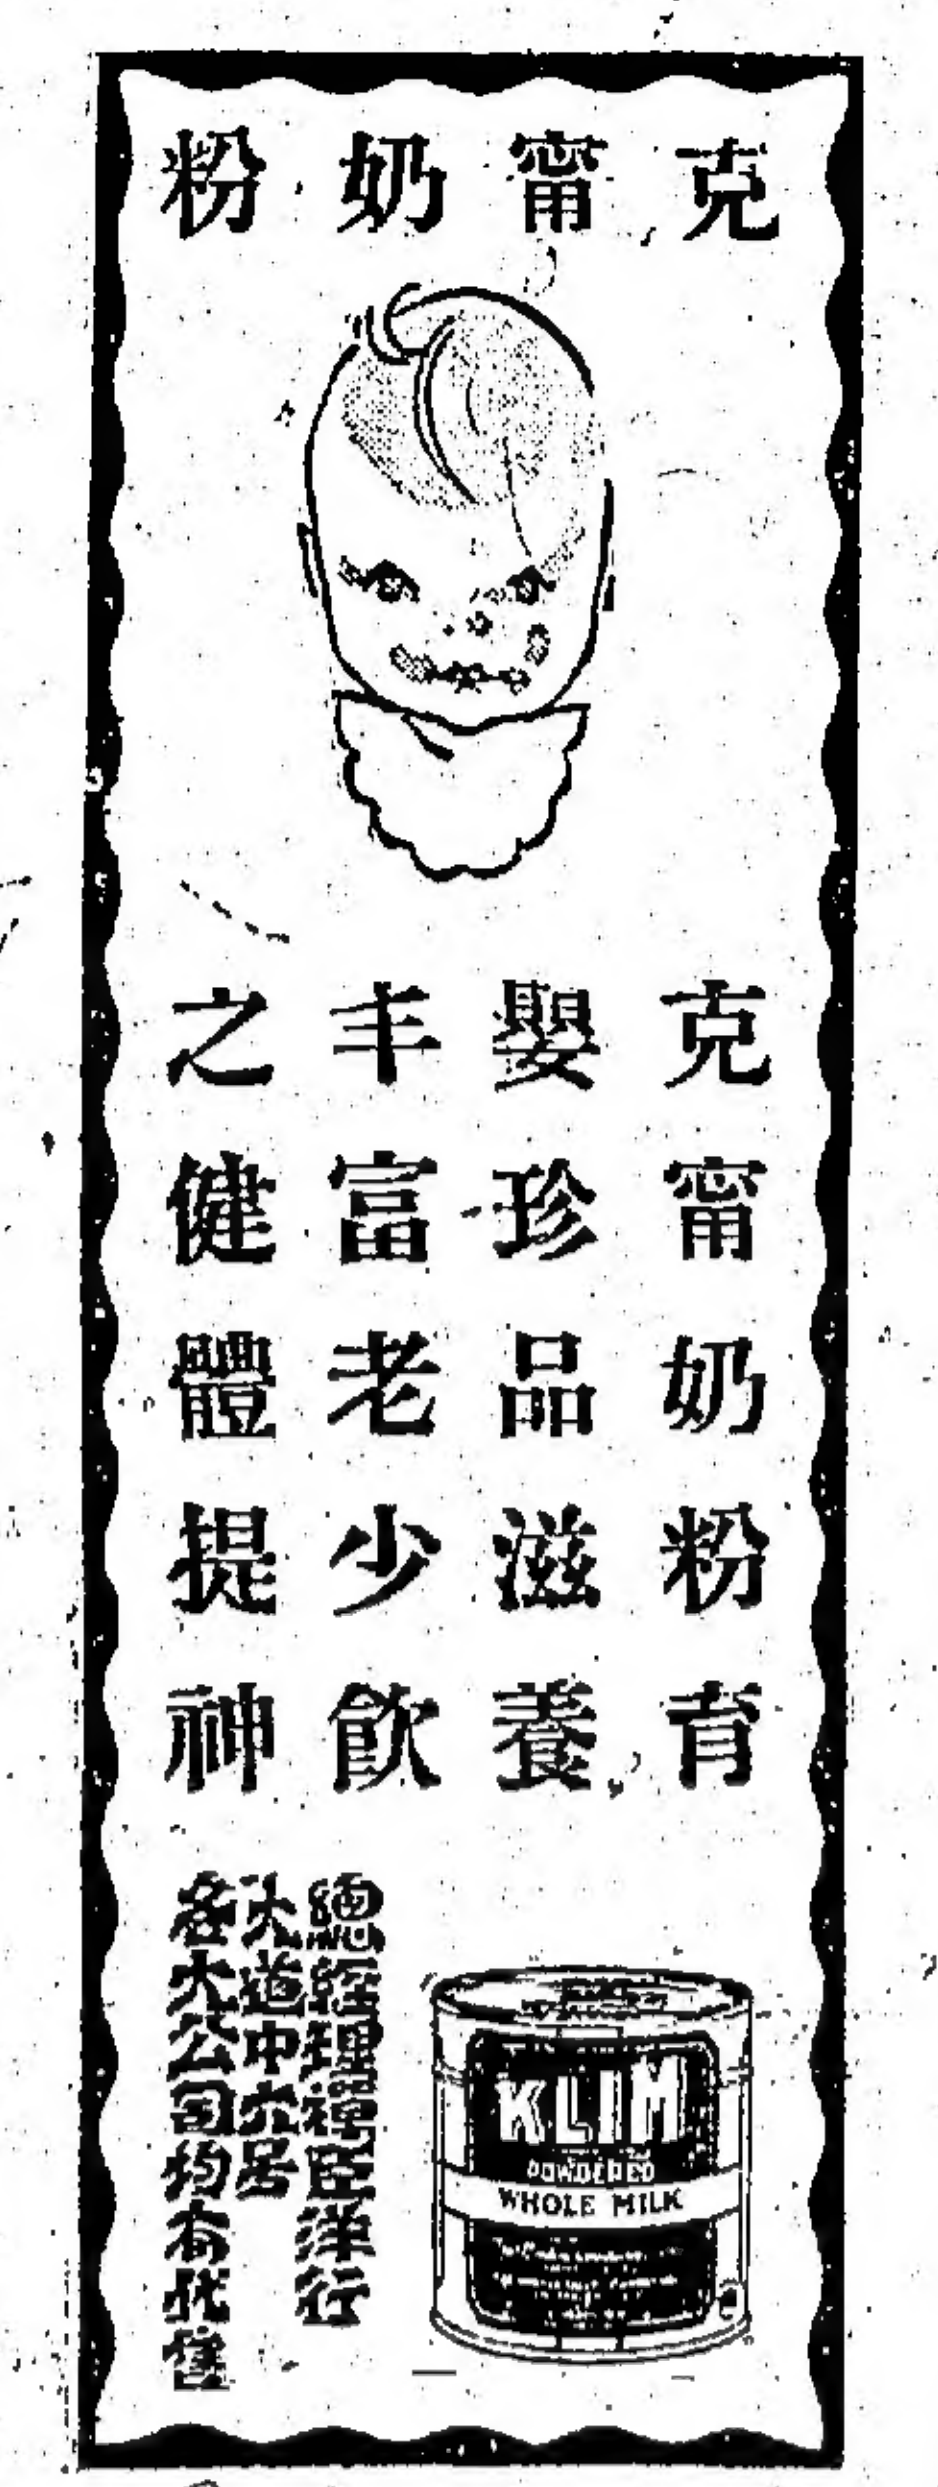 克甯奶粉
克甯奶粉育
嬰珍品滋養
丰富老少飲
之健體提神
總經理禪臣洋行
大道中六号
各大公司均有代售
KLIM
POWDERED
WHOLE MILK